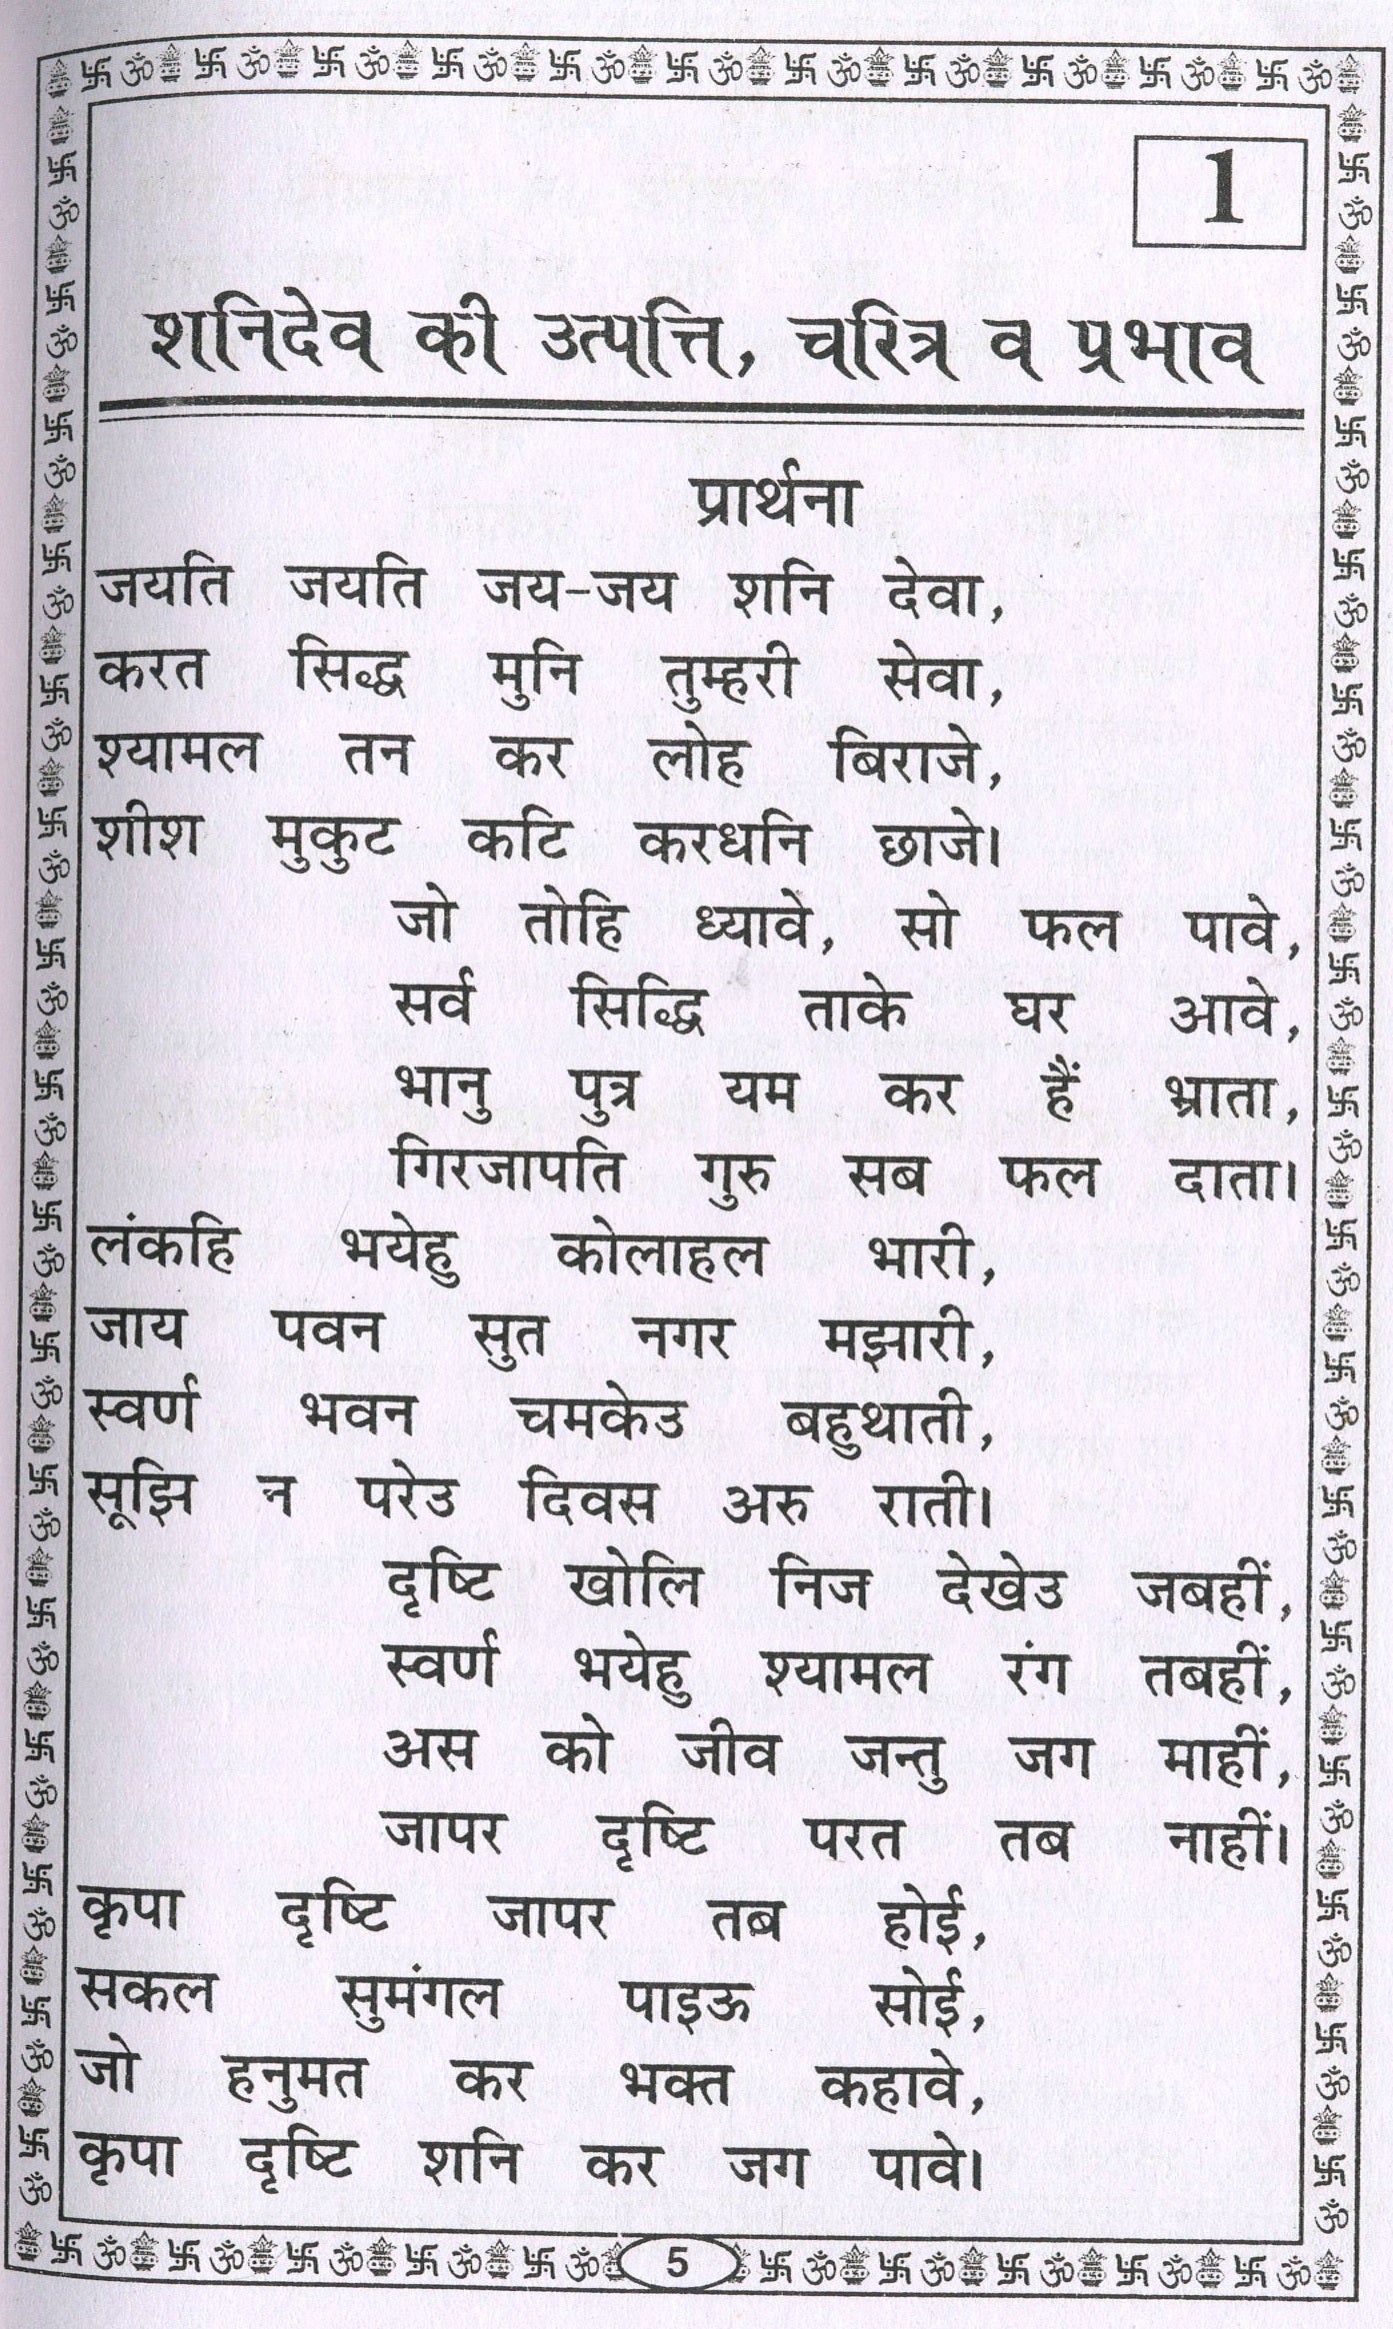 1
शनिदेव की उत्पत्ति, चरित्र व प्रभाव
प्रार्थना
जयति जयति जय-जय शनि देवा,
करत सिद्ध मुनि तुम्हरी सेवा,
श्यामल तन कर लोह बिराजे,
शीश मुकुट कटि करधनि छाजे।
जो तोहि ध्यावे, सो फल पावे,
सर्व सिद्धि ताके घर आवे,
भानु पुत्र यम कर हैं भ्राता,
गिरजापति गुरु सब फल दाता।
लंकहि भयेहु कोलाहल भारी,
जाय पवन सुत नगर मझारी,
स्वर्ण भवन चमकेउ बहुथाती,
सूझि न परेउ दिवस अरु राती।
दृष्टि खोलि निज देखेउ जबहीं,
स्वर्ण भयेहु श्यामल रंग तबहीं,
अस को जीव जन्तु जग माहीं,
जापर दृष्टि परत तब नाहीं।
कृपा दृष्टि जापर तब होई,
सकल सुमंगल पाइऊ सोई,
जो हनुमत कर भक्त कहावे,
कृपा दृष्टि शनि कर जग पावे।
5